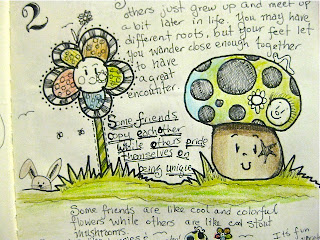 2
others just grew up and meet up
a bit later in life. You may have
different roots, but your feet let
you wander close enough together
to have
a great
encounter.
Some friends
copy each other
while others pride
themselves on
being unique
Some friends are like cool and colorful
flowers while others are like cool stout
mushrooms.
It's fun